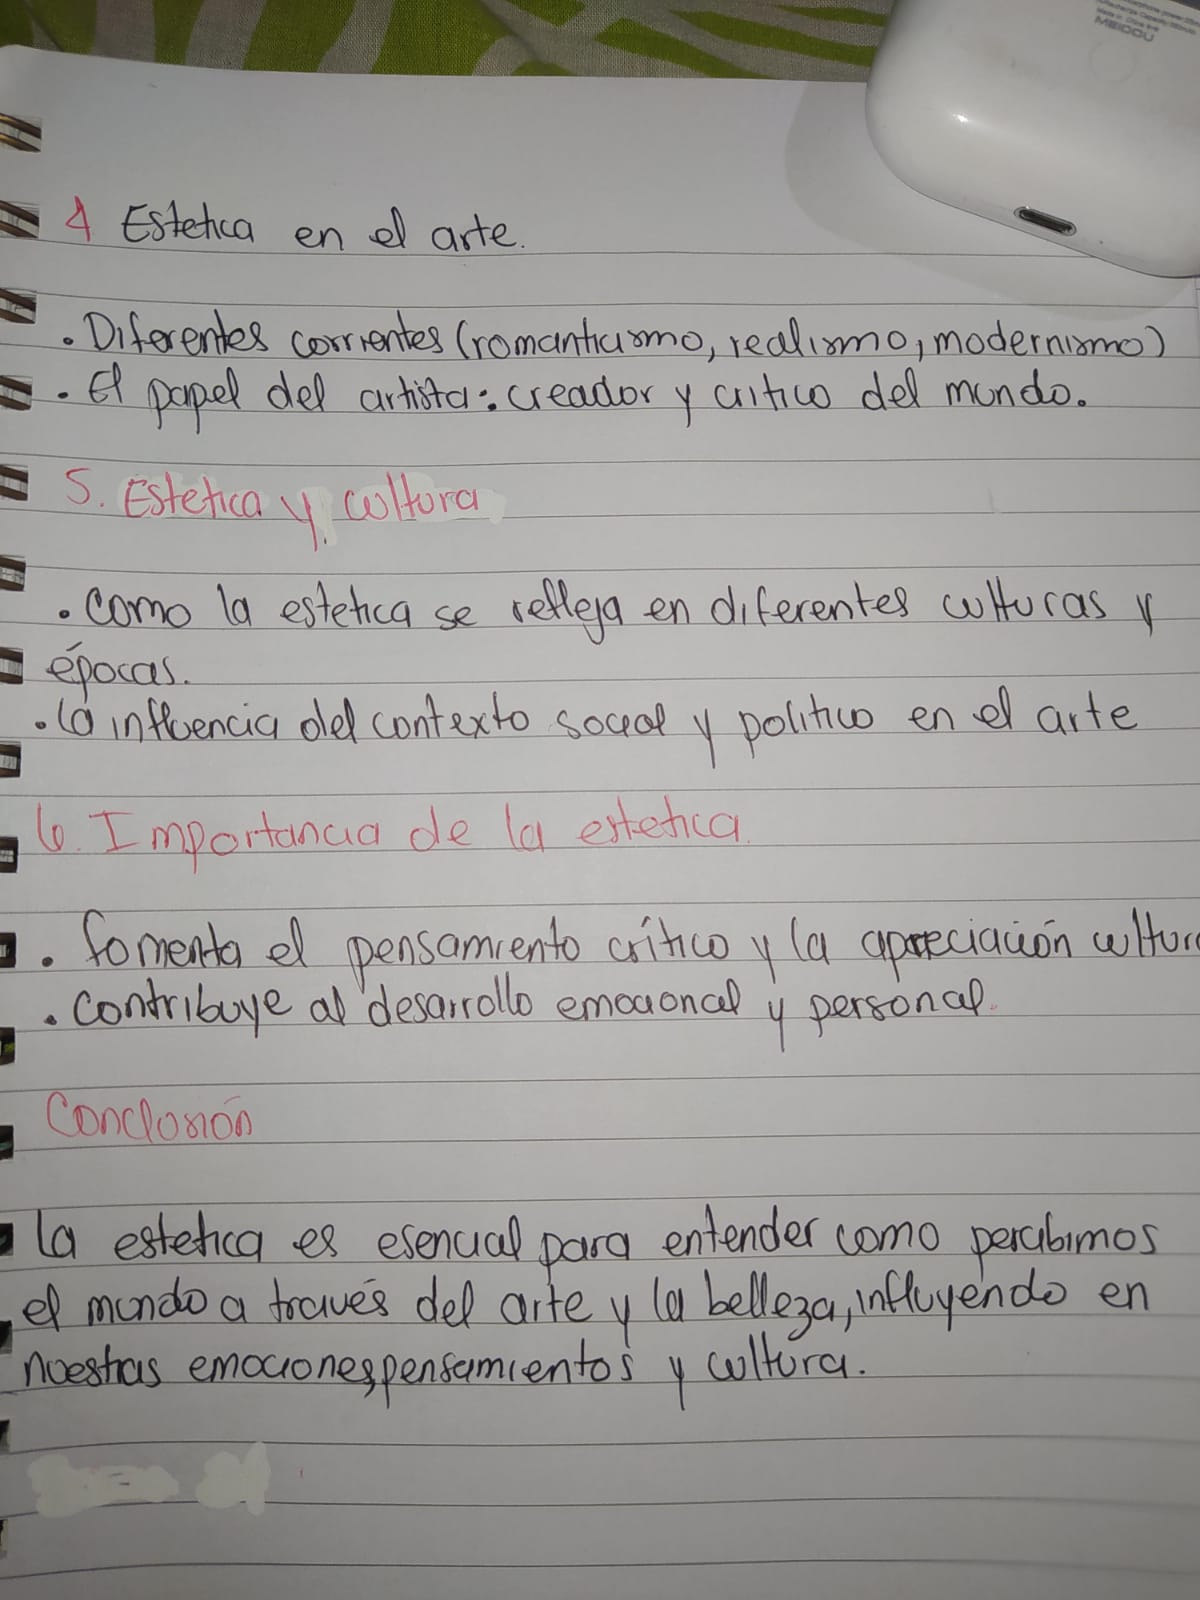 MEIDOU
4 Estetica en el arte.
• Diferentes corrientes (romanticismo, realismo, modernismo)
• El papel del artista: creador y critico del mundo.
5. Estetica y cultura
• Como la estetica se refleja en diferentes culturas y
épocas.
• La influencia del contexto social y politico en el arte
6. Importancia de la estetica.
• fomenta el pensamiento crítico y la apreciación cultura
• contribuye al desarrollo emocional y personal.
Conclusión
la estetica es esencial para entender como percibimos
el mundo a través del arte y la belleza, influyendo en
nuestras emociones, pensamientos y cultura.